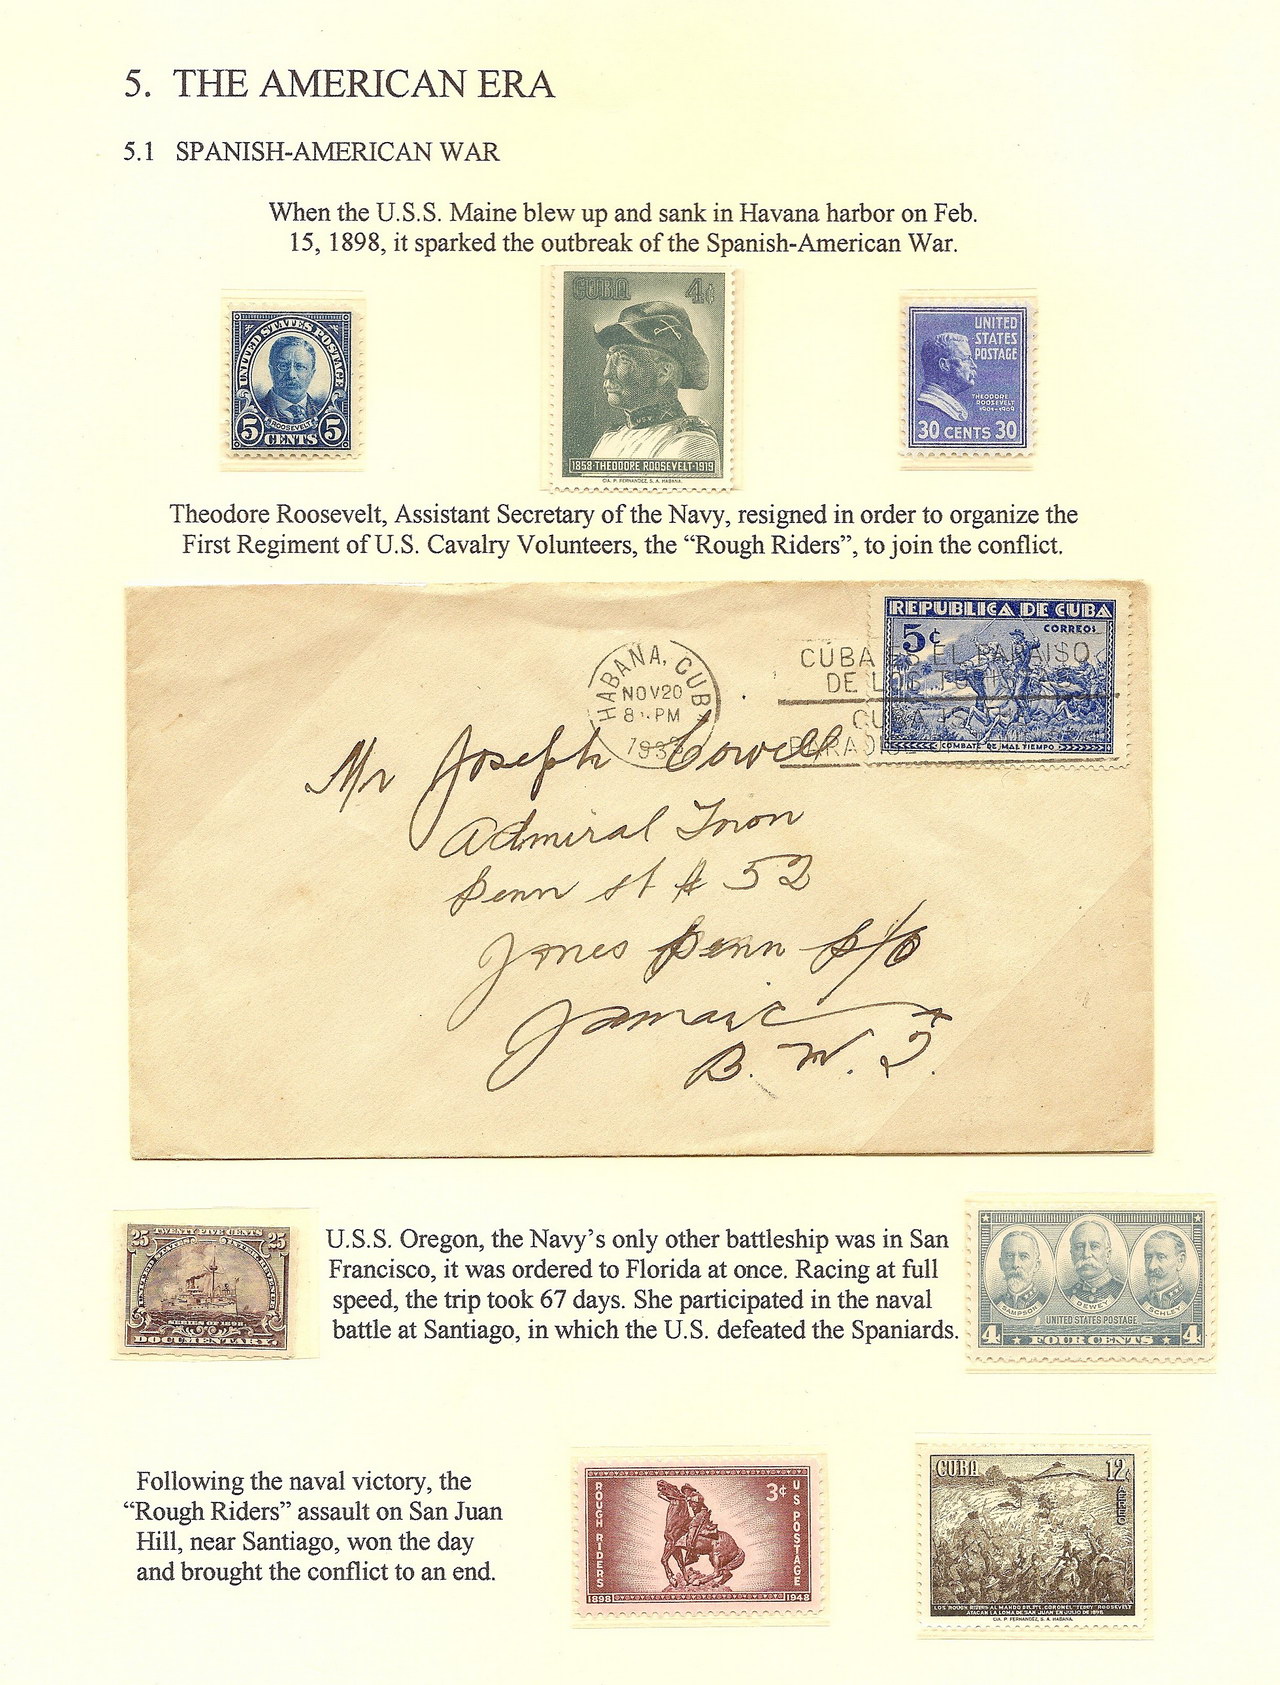 5. THE AMERICAN ERA
5.1 SPANISH-AMERICAN WAR
When the U.S.S. Maine blew up and sank in Havana harbor on Feb.
15, 1898, it sparked the outbreak of the Spanish-American War.
UNITED STATES POSTAGE
ROOSEVELT
5 CENTS 5
CUBA 4¢
1858·THEODORE ROOSEVELT·1919
CIA. P. FERNANDEZ, S. A. HABANA.
UNITED
STATES
POSTAGE
THEODORE
ROOSEVELT
1901-1909
30 CENTS 30
Theodore Roosevelt, Assistant Secretary of the Navy, resigned in order to organize the
First Regiment of U.S. Cavalry Volunteers, the “Rough Riders”, to join the conflict.
REPUBLICA DE CUBA
5¢ CORREOS
COMBATE DE MAL TIEMPO
HABANA, CUBA
NOV 20
8 PM
CUBA ES EL PARAISO
DE LOS
CUBA IS
PARADISE
Mr Joseph Cowell
Admiral
Penn st # 52
Jones Penn P/O
Jamaica
B. W. I.
25 TWENTY FIVE CENTS 25
SERIES OF 1898
DOCUMENTARY.
U.S.S. Oregon, the Navy’s only other battleship was in San
Francisco, it was ordered to Florida at once. Racing at full
speed, the trip took 67 days. She participated in the naval
battle at Santiago, in which the U.S. defeated the Spaniards.
SAMPSON DEWEY SCHLEY
UNITED STATES POSTAGE
4 FOUR CENTS 4
Following the naval victory, the
“Rough Riders” assault on San Juan
Hill, near Santiago, won the day
and brought the conflict to an end.
ROUGH RIDERS
3¢
U S POSTAGE
1898 1948
CUBA 12¢
AEREO
LOS ROUGH RIDERS AL MANDO DEL TTE. CORONEL "TEDDY" ROOSEVELT
ATACAN LA LOMA DE SAN JUAN EN JULIO DE 1898
CIA. P. FERNANDEZ, S. A. HABANA.